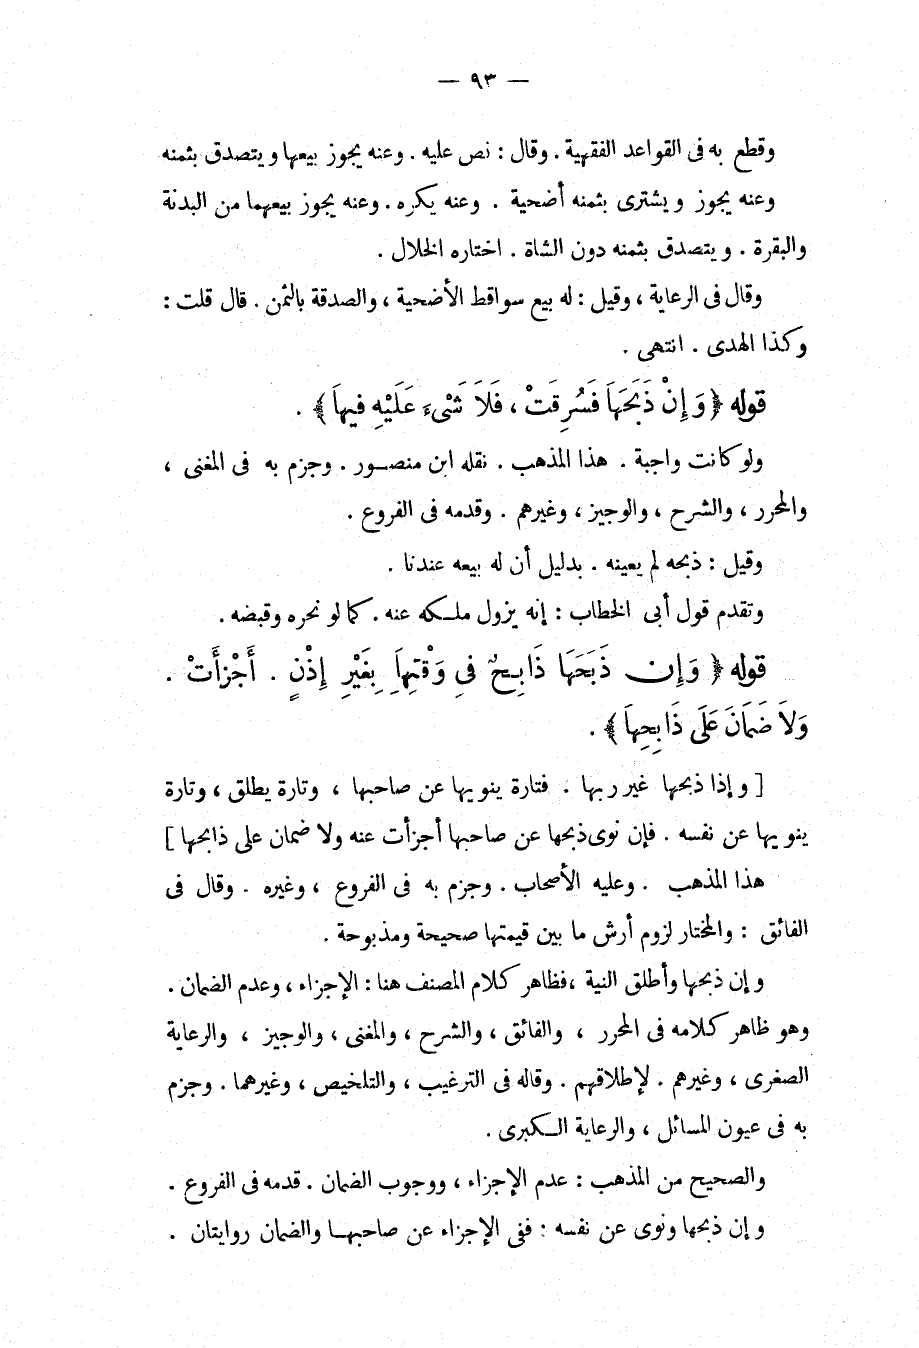 — ٩٣ —
وقطع به فى القواعد الفقهية . وقال : نص عليه . وعنه يجوز بيعها ويتصدق بثمنه
وعنه يجوز ويشترى بثمنه أضحية . وعنه يكره . وعنه يجوز بيعهما من البدنة
والبقرة . ويتصدق بثمنه دون الشاة . اختاره الخلال .
وقال فى الرعاية ، وقيل : له بيع سواقط الأضحية ، والصدقة بالثمن . قال قلت :
وكذا الهدى . انتهى .
قوله ﴿ وَإِنْ ذَبَحَهَا فَسُرِقَتْ ، فَلَا شَىْءَ عَلَيْهِ فِيهَا ﴾ .
ولو كانت واجبة . هذا المذهب . نقله ابن منصور . وجزم به فى المغنى ،
والمحرر ، والشرح ، والوجيز ، وغيرهم . وقدمه فى الفروع .
وقيل : ذبحه لم يعينه . بدليل أن له بيعه عندنا .
وتقدم قول أبى الخطاب : إنه يزول ملكه عنه . كما لو نحره وقبضه .
قوله ﴿ وَإِن ذَبَحَهَا ذَابِحٌ فِى وَقْتِهَا بِغَيْرِ إِذْنٍ . أَجْزَأَتْ .
وَلَا ضَمَانَ عَلَى ذَابِحِهَا ﴾ .
[ وإذا ذبحها غير ربها . فتارة ينويها عن صاحبها ، وتارة يطلق ، وتارة
ينويها عن نفسه . فإن نوى ذبحها عن صاحبها أجزأت عنه ولا ضمان على ذابحها ]
هذا المذهب . وعليه الأصحاب . وجزم به فى الفروع ، وغيره . وقال فى
الفائق : والمختار لزوم أرش ما بين قيمتها صحيحة ومذبوحة .
وإن ذبحها وأطلق النية ، فظاهر كلام المصنف هنا : الإجزاء ، وعدم الضمان .
وهو ظاهر كلامه فى المحرر ، والفائق ، والشرح ، والمغنى ، والوجيز ، والرعاية
الصغرى ، وغيرهم . لإطلاقهم . وقاله فى الترغيب ، والتلخيص ، وغيرهما . وجزم
به فى عيون المسائل ، والرعاية الكبرى .
والصحيح من المذهب : عدم الإجزاء ، ووجوب الضمان . قدمه فى الفروع .
وإن ذبحها ونوى عن نفسه : ففى الإجزاء عن صاحبها والضمان روايتان .